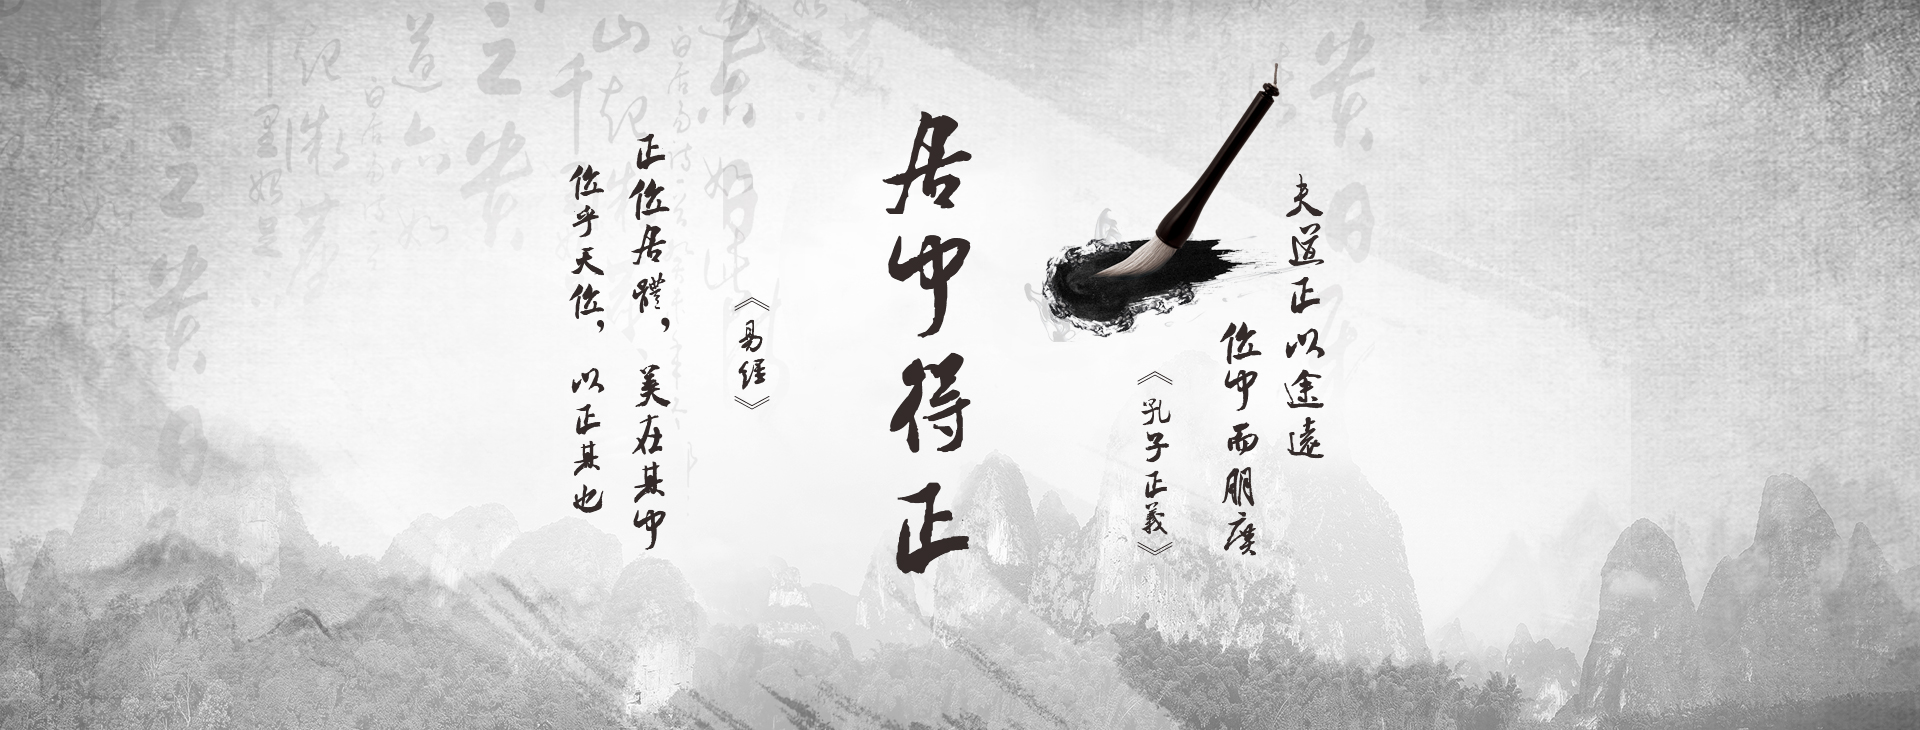 夫道正以途遠
位中而朋廣
《孔子正義》
居中得正
《易經》
正位居體，美在其中
位乎天位，以正其也